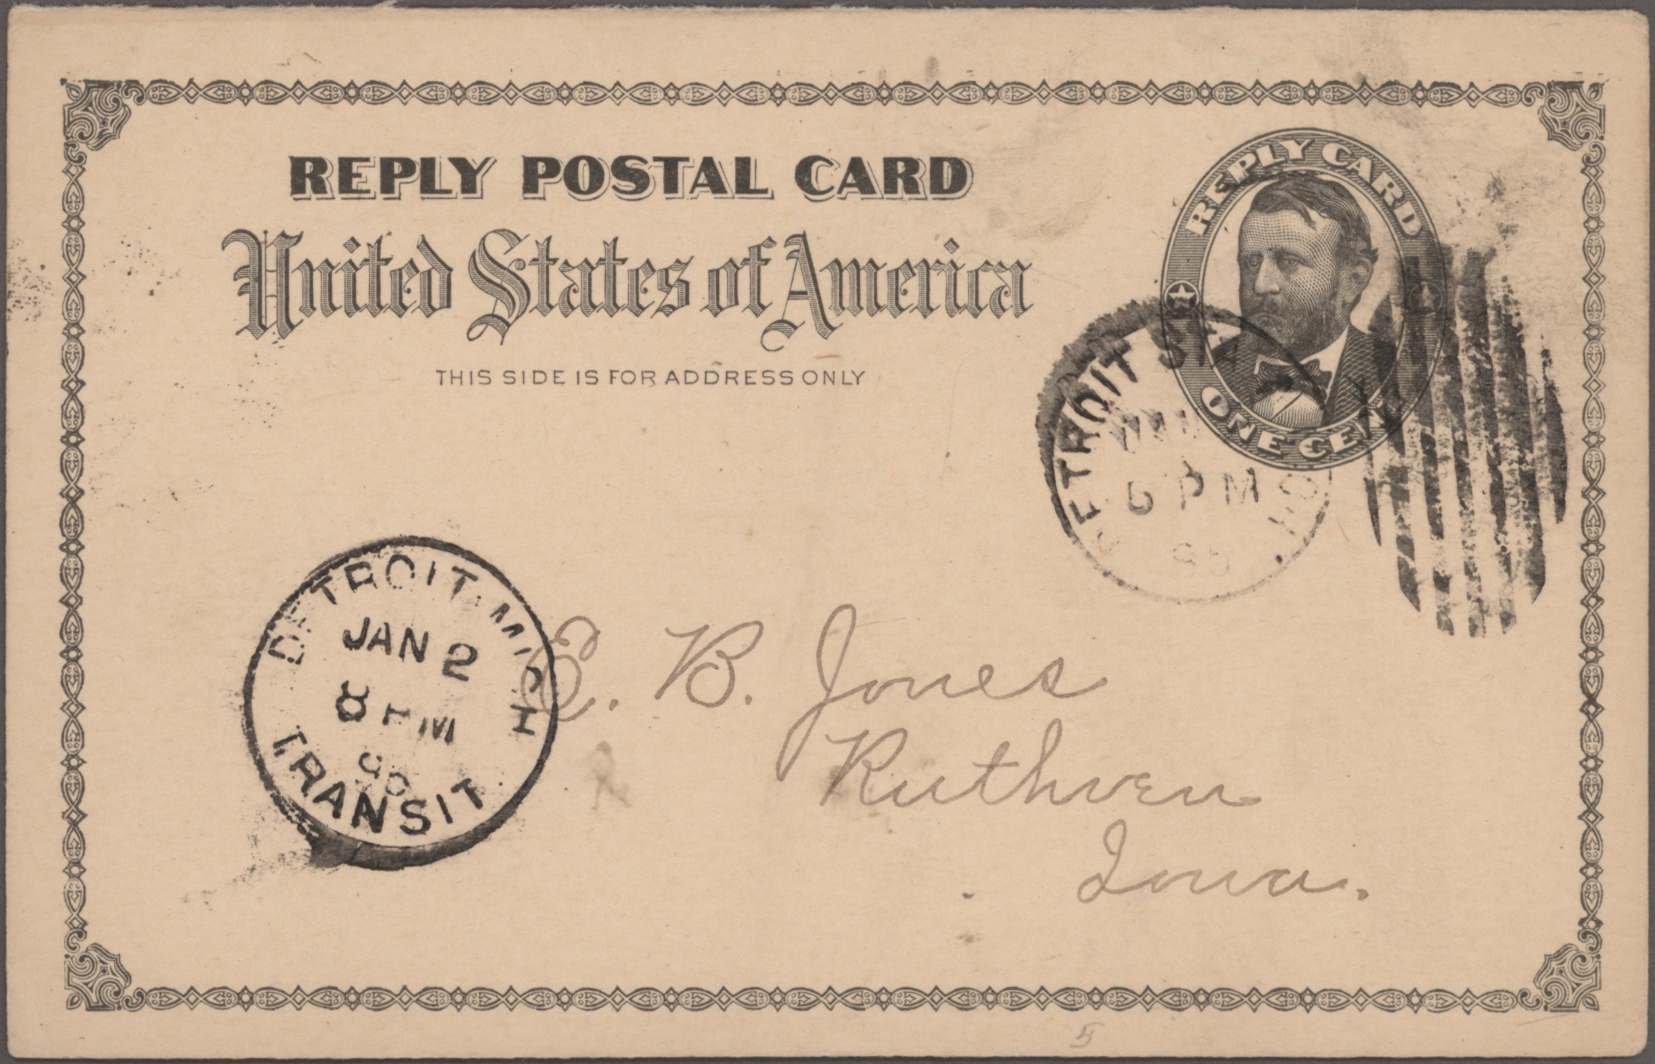 REPLY POSTAL CARD
United States of America
THIS SIDE IS FOR ADDRESS ONLY
REPLY CARD
ONE CENT
DETROIT STA
JAN
5 PM
95
DETROIT, MICH
JAN 2
8 PM
TRANSIT
E. B. Jones
Ruthven
Iowa.
5